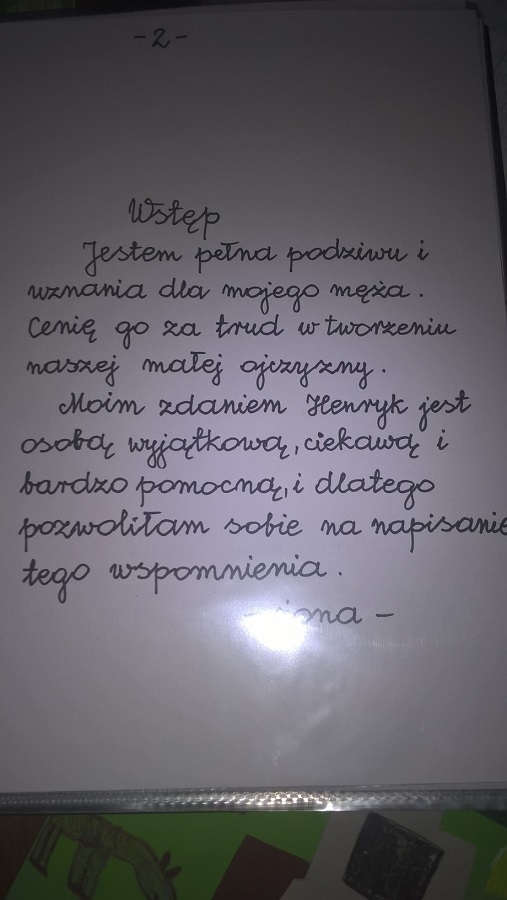 -2-
Wstęp
Jestem pełna podziwu i
uznania dla mojego męża.
Cenię go za trud w tworzeniu
naszej małej ojczyzny.
Moim zdaniem Henryk jest
osobą wyjątkową, ciekawą i
bardzo pomocną, i dlatego
pozwoliłam sobie na napisanie
tego wspomnienia.